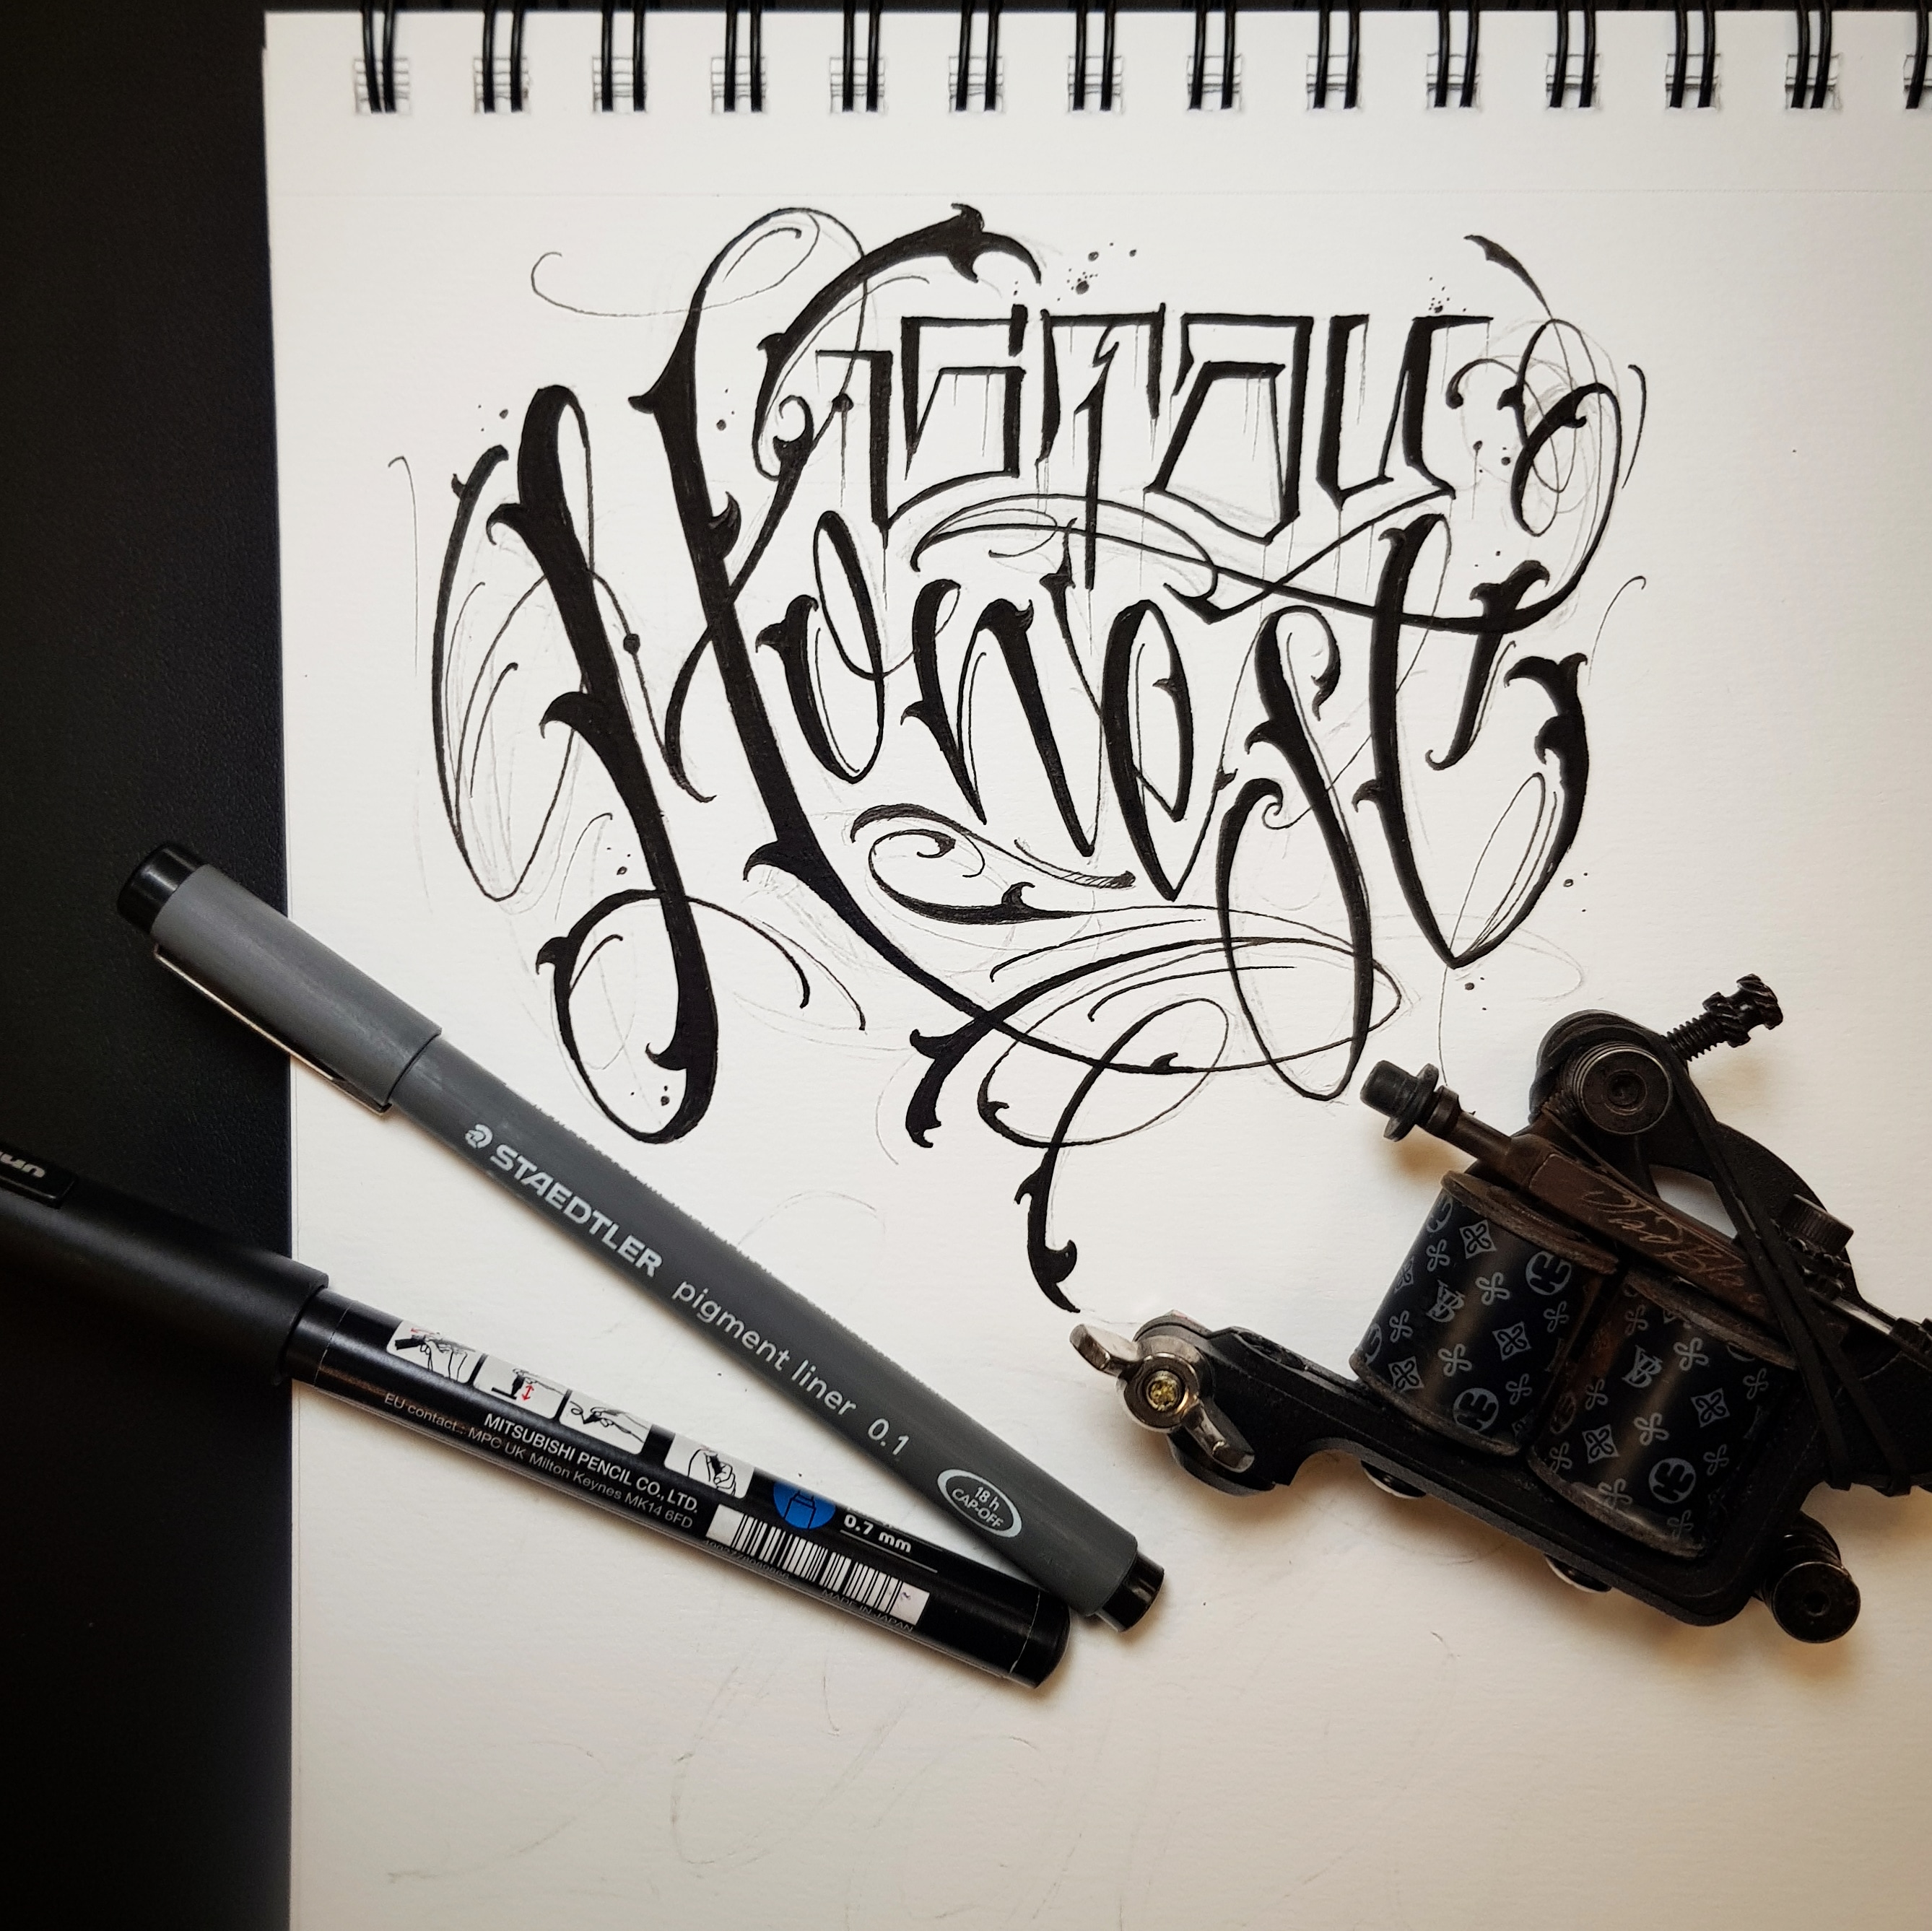 Stay
Honest
STAEDTLER pigment liner 0.1
18 h
CAP-OFF
MITSUBISHI PENCIL CO., LTD.
EU contact.: MPC UK Milton Keynes MK14 6FD
0.7 mm
MADE IN JAPAN